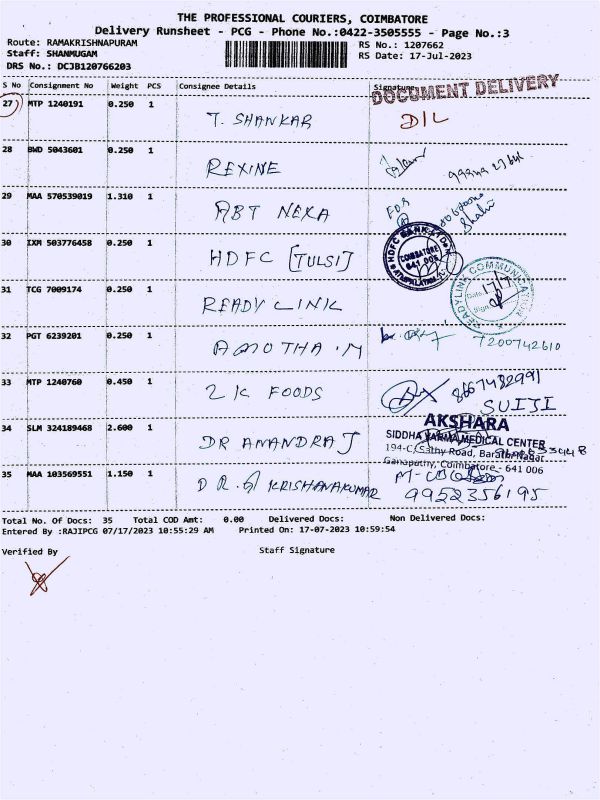 THE PROFESSIONAL COURIERS, COIMBATORE
Delivery Runsheet - PCG - Phone No.:0422-3505555 - Page No.:3
Route: RAMAKRISHNAPURAM
RS No.: 1207662
Staff: SHANMUGAM
RS Date: 17-Jul-2023
DRS No.: DCJB120766203
S No Consignment No Weight PCS Consignee Details Signature
DOCUMENT DELIVERY
27 MTP 1240191 0.250 1 T. SHANKAR D/L
28 BWD 5043601 0.250 1 REXINE
29 MAA 570539019 1.310 1 ABT NEXA
30 IXM 503776458 0.250 1 HDFC [TULSI]
HDFC BANK LTD
COIMBATORE
641 006
31 TCG 7009174 0.250 1 READY LINK
READYLINK COMMUNICATION
Date: 17/7
Sign
32 PGT 6239201 0.250 1 AMOTHA.M 7200742610
33 MTP 1240760 0.450 1 2K FOODS 8667482991
SUIJI
34 SLM 324189468 2.600 1 DR ANANDRAJ
AKSHARA
SIDDHA VARMA MEDICAL CENTER
194-C, Sathy Road, Barathi Nagar
Ganapathy, Coimbatore - 641 006
35 MAA 103569551 1.150 1 DR.G KRISHANAKUMAR
9952356195
Total No. Of Docs: 35 Total COD Amt: 0.00 Delivered Docs: Non Delivered Docs:
Entered By :RAJIPCG 07/17/2023 10:55:29 AM Printed On: 17-07-2023 10:59:54
Verified By Staff Signature